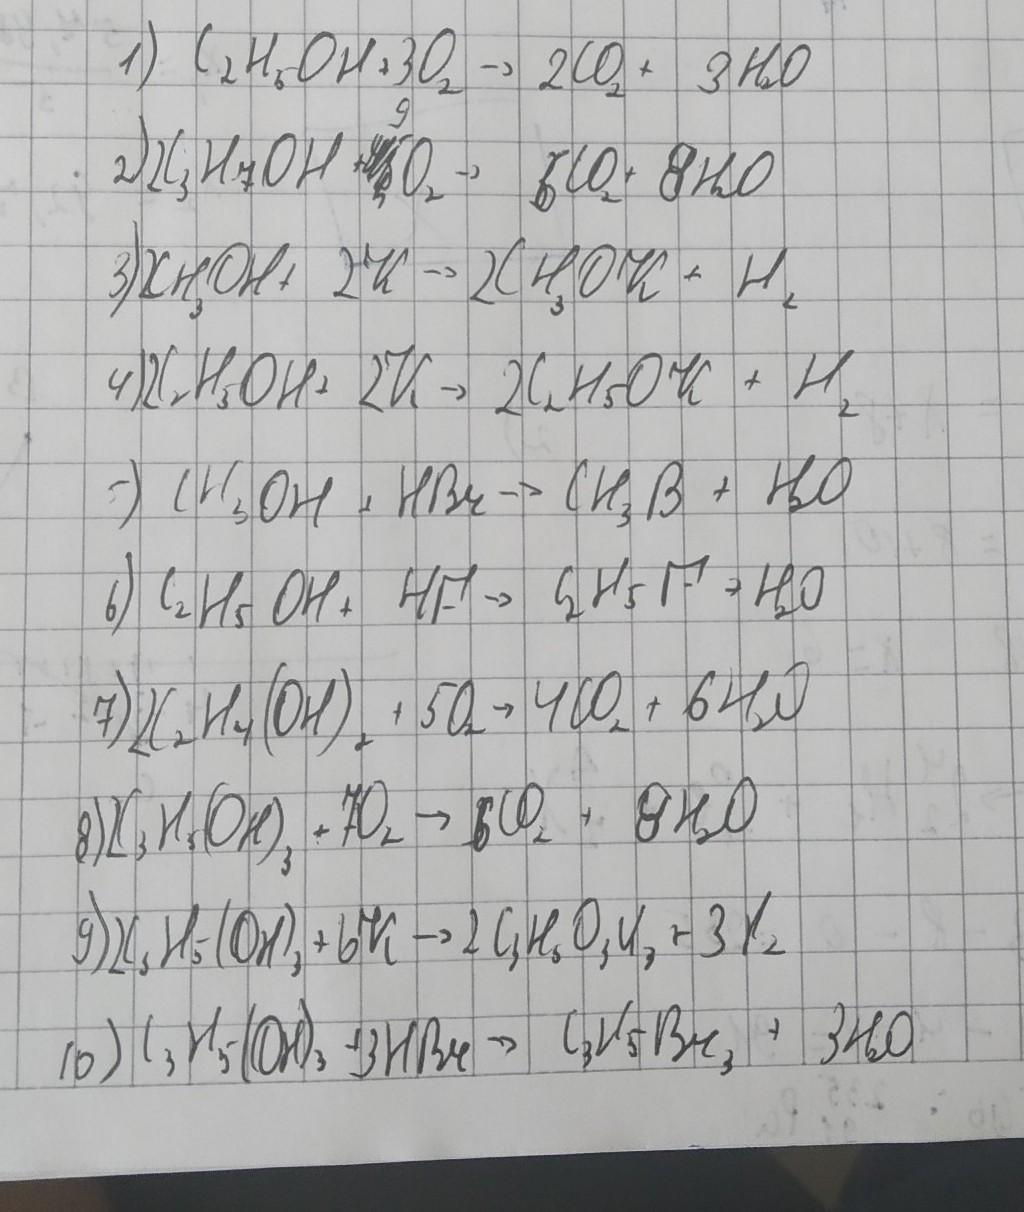 1) C₂H₅OH + 3O₂ → 2CO₂ + 3H₂O
2) 2C₃H₇OH + 9O₂ → 6CO₂ + 8H₂O
3) 2CH₃OH + 2K → 2CH₃OK + H₂
4) 2C₂H₅OH + 2K → 2C₂H₅OK + H₂
5) CH₃OH + HBr → CH₃B + H₂O
6) C₂H₅OH + HF → C₂H₅F + H₂O
7) 2C₂H₄(OH)₂ + 5O₂ → 4CO₂ + 6H₂O
8) 2C₃H₅(OH)₃ + 7O₂ → 6CO₂ + 8H₂O
9) 2C₃H₅(OH)₃ + 6K → 2C₃H₅O₃K₃ + 3H₂
10) C₃H₅(OH)₃ + 3HBr → C₃H₅Br₃ + 3H₂O